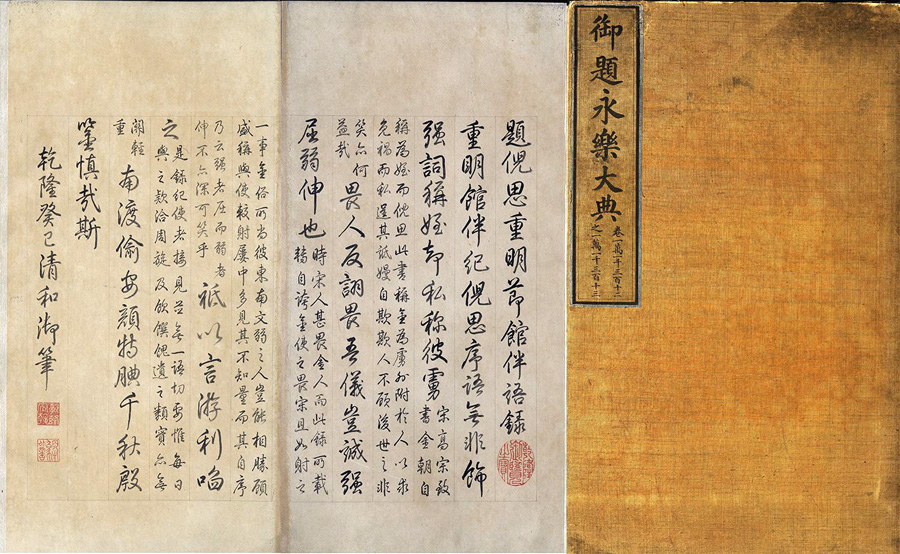 御題永樂大典
卷一萬一千三百十二
之一萬一千三百十三
題倪思重明節館伴語錄
重明館伴紀倪思序語無非飾
强詞稱姪却私称彼虜
宋高宗致
書金朝自
稱為姪而倪思此書稱金為虜外附於人以求
免禍而私逞其詆嫚自欺欺人不顧後世之非
笑亦何
益哉
畏人反詡畏吾儀豈誠强
屈弱伸也
時宋人甚畏金人而此錄所載
轉自誇金使之畏宋且如射之
一事金俗所尚彼東南文弱之人豈能相勝顧
盛稱與使較射屢中多見其不知量而其自序
乃云强者屈而弱者
伸不亦深可笑乎
祗以言游利啗
之
是錄紀使者接見並無一語切要惟每日
與之款洽周旋及飲饌餽遺之類實亦無
關輕
重
南渡偷安顏特腆千秋殷
鑒慎哉斯
乾隆癸巳清和御筆